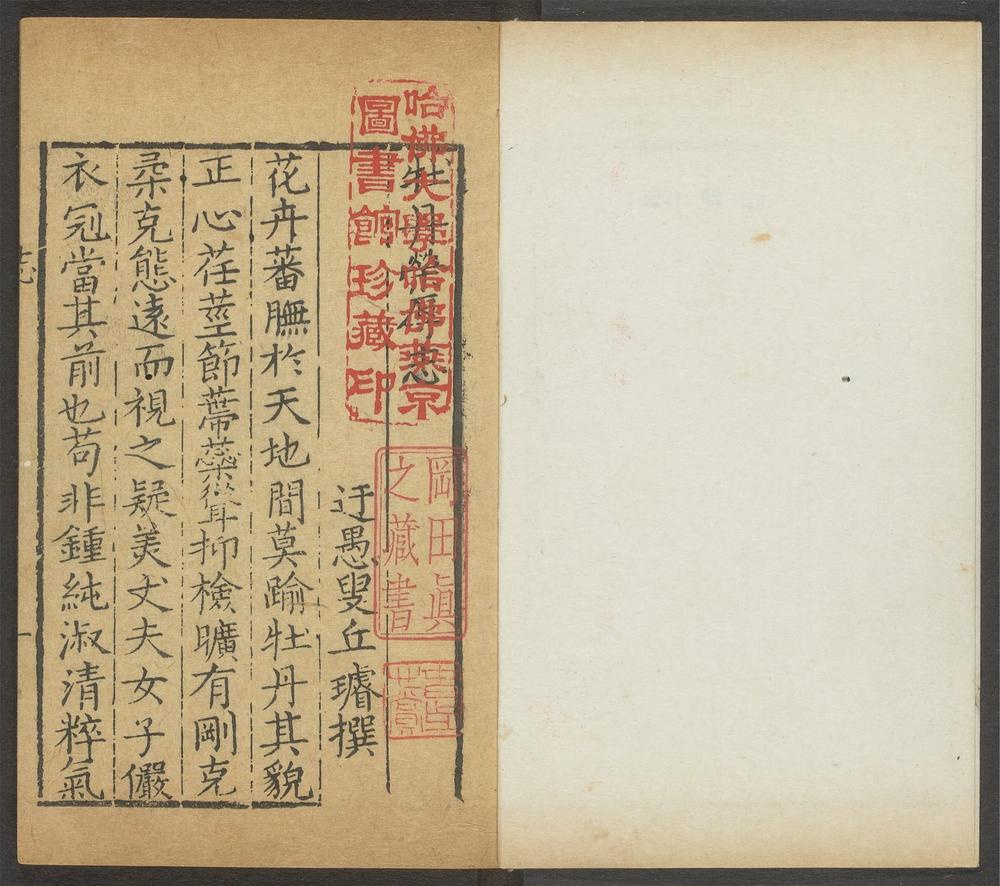 牡丹榮辱志
迂愚叟丘璿撰
花卉蕃蕪於天地間莫踰牡丹其貌
正心荏莖節蔕蘂聳抑檢曠有剛克
柔克態遠而視之疑美丈夫女子儼
衣冠當其前也苟非鍾純淑清粹氣
志
一
哈佛大學哈佛燕京
圖書館珍藏印
岡田眞
之藏書